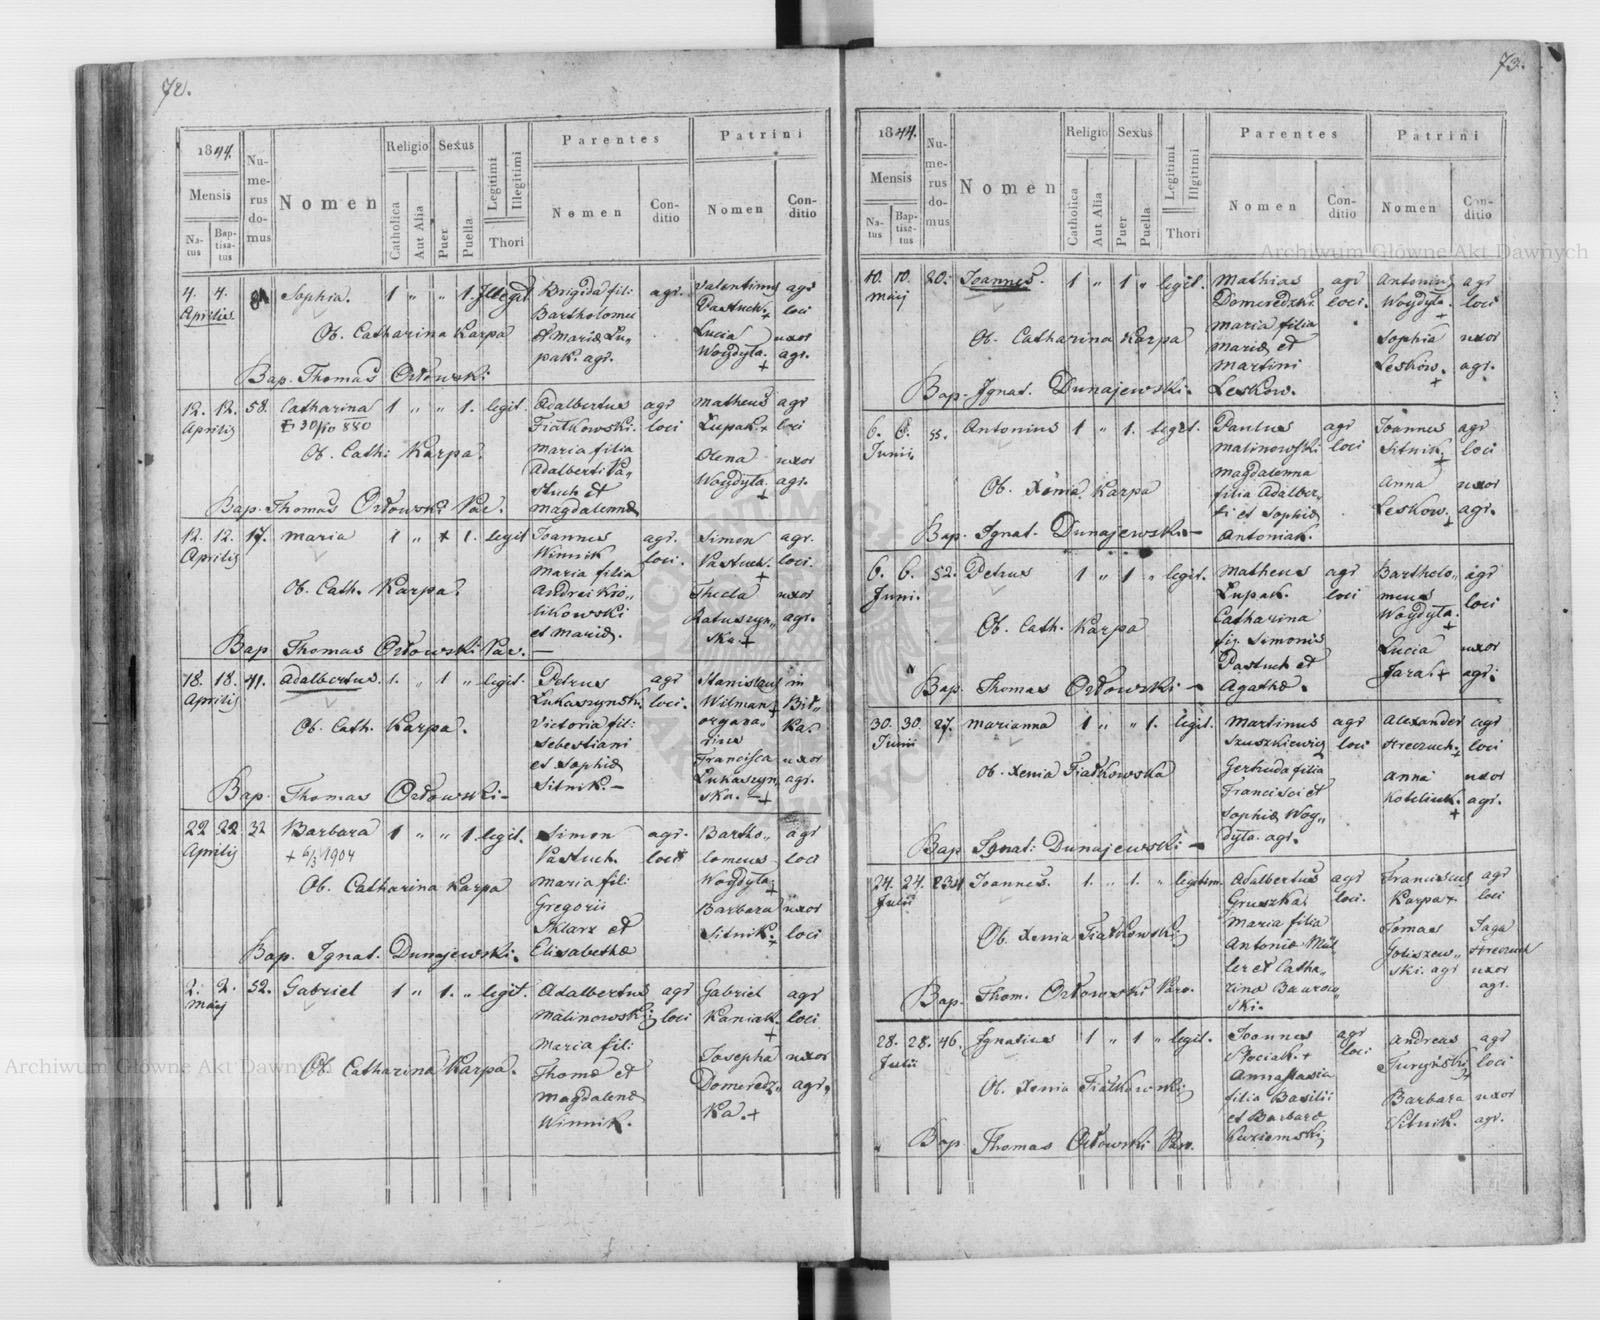 72.
1844.
Mensis
Natus
Baptisatus
Numerus domus
Nomen
Religio
Catholica
Aut Alia
Sexus
Puer
Puella
Legitimi
Illegitimi
Thori
Parentes
Nomen
Conditio
Patrini
Nomen
Conditio
4. 4. Sophia. 1 " " 1. Illegit. Brigida fil: agr. Valentinus agr
Aprilis Bartholomei Pastuch. + loci
Ob. Catharina Karpa et Mariæ Lu„ Lucia uxor
pak agr. Woydyta. + agr.
Bap. Thomas Orłowski
12. 12. 58. Catharina 1 " " 1. legit. Adalbertus agr Matheus agr
Aprilis 30/10 880 Fiałkowski. loci Łupak. + loci
Ob. Cath. Karpa. Maria filia Olena uxor
Adalberti Pa„ Woydyta. + agr.
stuch et
Bap. Thomas Orłowski Par. Magdalennæ
12. 12. 17. Maria 1 " + 1. legit Joannes agr. Simon agr.
Aprilis Winnik loci. Pastuch. + loci.
Maria filia
Ob. Cath. Karpa. Andrei Kro„ Thecla uxor
likowski Ratuszyn„ agr.
et Mariæ. ska. +
Bap Thomas Orłowski Par. —
18. 18. 41. Adalbertus. 1. " 1 " legit. Petrus agr Stanislaus in
Aprilis Łukaszynski. loci. Wilman + Bit„
Ob. Cath. Karpa. Victoria fil: organa„ ka.
Sebestiani rius
et Sophiæ Francisca uxor
Sitnik. — Łukaszyn„ agr.
Bap. Thomas Orłowski — ska. — +
22 22 32 Barbara 1 " " 1. legit. Simon agr. Bartho„ agr
Aprilis + 6/3 1904 Pastuch. loci lomeus loci
Ob. Catharina Karpa Maria fil: Woydyta. +
Gregorii Barbara uxor
Sklarz et Sitnik. + loci
Bap. Ignat. Dunajewski. Elisabethæ
2. 2. 52. Gabriel 1 " 1. " legit. Adalbertus agr Gabriel agr
Maij Malinowski loci Kaniak. + loci
Maria fil:
Ob. Catharina Karpa. Thomæ et Josepha uxor
Magdalenæ Domeredz„ agr.
Winnik. ka. +
73.
1844.
Mensis
Natus
Baptisatus
Numerus domus
Nomen
Religio
Catholica
Aut Alia
Sexus
Puer
Puella
Legitimi
Illgitimi
Thori
Parentes
Nomen
Conditio
Patrini
Nomen
Conditio
10. 10. 20. Joannes. 1 " 1 " legit. Mathias agr Antonius agr
Maij Domeredzki. loci. Woydyta. + loci
Maria filia
Ob. Catharina Karpa Mariæ et Sophia uxor
Martini Leskow. + agr.
Bap. Ignat. Dunajewski. Leskow.
6. 6. 55. Antonius 1 " 1. legit. Paulus agr Joannes agr
Junii. Malinowski loci Sitnik. + loci
Magdalenna Anna uxor
Ob. Xenia Karpa filia Adalber„ Leskow. + agr.
ti et Sophiæ
Bap. Ignat. Dunajewski — Antoniak.
6. 6. 52. Petrus 1 " 1 " legit. Matheus agr Bartholo„ agr
Juni. Łupak. loci meus loci
Catharina Woydyta. +
Ob. Cath. Karpa fil. Simonis Lucia uxor
Pastuch et Jarak. + agr.
Bap. Thomas Orłowski — Agathæ.
30. 30. 27. Marianna 1 " " 1. legit. Martinus agr Alexander agr
Junii Szuszkiewicz loci Streczuch. + loci
Gertruda filia Anna uxor
Ob. Xenia Fiałkowska Francisci et agr.
Sophiæ Woy„
Bap Ignat: Dunajewski — dyta. agr.
24. 24. Joannes. 1. " 1. " legitim. Adalbertus agr Franciscus agr
Julii Gruszka loci. Karpa +. loci
Maria filia
Ob. Xenia Fiałkowski Antoniæ Mül„ Tomas Jaga
ler et Catha„ Goliszew„ Streczuch
rina Baurow„ ski. agr uxor
Bap. Thom. Orłowski Paro. ski. agr.
28. 28. 46. Ignatius 1 " 1 " legit. Joannes agr Andreas agr
Julii loci Turyński + loci
Annastasia
Ob. Xenia Fiałkowski filia Basilii Barbara uxor
et Barbaræ Sitnik. agr.
Bap. Thomas Orłowski Paro. Kuziemski
Archiwum Główne Akt Dawnych
Archiwum Główne Akt Dawnych
ARCHIWUM GŁÓWNE AKT DAWNYCH